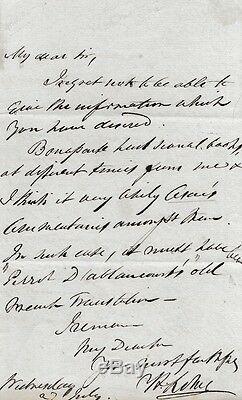 My dear Sir,
I regret not to be able to
give the information which
you have desired.
Bonaparte had several books
at different times from me &
I think it very likely Cæsar's
Commentaries amongst them
In such case, it must have been
"Perrot D'ablancourt's" old
french translation —
I remain
My Dear Sir
Wednesday
July